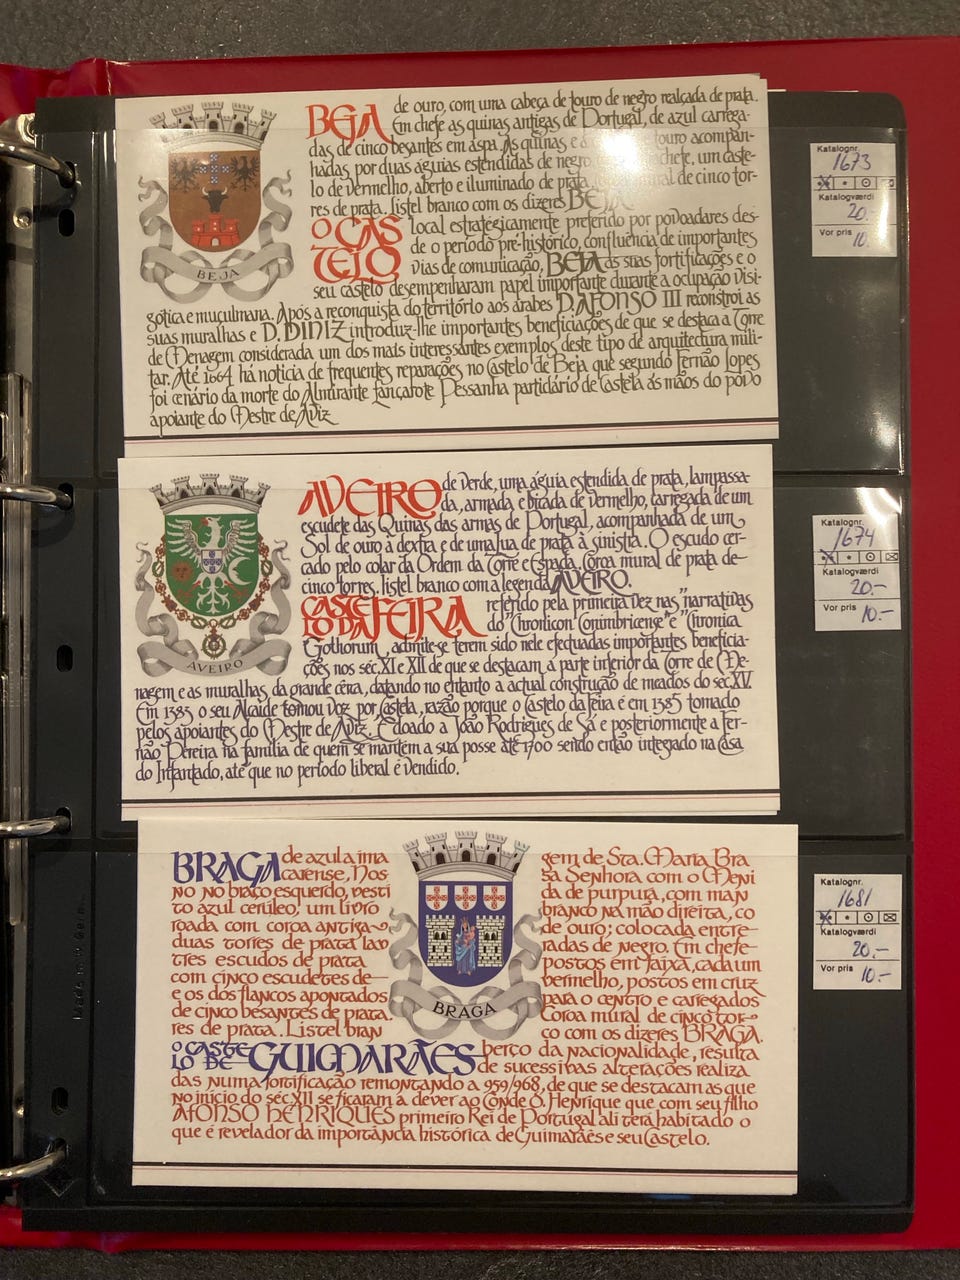 BEJA de ouro, com uma cabeça de touro de negro realçada de prata.
Em chefe as quinas antigas de Portugal, de azul carrega-
das de cinco besantes em aspa. As quinas e a touro acompan-
hadas por duas águias estendidas de negro. chefe, um caste-
lo de vermelho, aberto e iluminado de prata. mural de cinco tor-
res de prata. Listel branco com os dizeres BEJA
O CAS local estratégicamente preferido por povoadores des-
de o período pré-histórico, confluência de importantes
TELO vias de comunicação, BEJA as suas fortificações e o
seu castelo desempenharam papel importante durante a ocupação visi-
gótica e muçulmana. Após a reconquista do território aos árabes D. AFONSO III reconstroi as
suas muralhas e D. DINIZ introduz-lhe importantes beneficiações de que se destaca a Torre
de Menagem considerada um dos mais interessantes exemplos deste tipo de arquitectura mili-
tar. Até 1664 há noticia de frequentes reparações no Castelo de Beja que segundo Fernão Lopes
foi cenário da morte do Almirante Lançarote Pessanha partidário de Castela ás mãos do povo
apoiante do Mestre de Aviz
BEJA
Katalognr.
1673
Katalogværdi
20.-
Vor pris
10.-
AVEIRO de verde, uma águia estendida de prata, lampassa-
da, armada e bicada de vermelho, carregada de um
escudete das Quinas das armas de Portugal, acompanhada de um
Sol de ouro à dextra e de uma lua de prata à sinistra. O escudo cer-
cado pelo colar da Ordem da Torre e Espada. Coroa mural de prata de
cinco torres. Listel branco com a legenda AVEIRO.
CASTE- referido pela primeira vez nas "narrativas
LO DA FEIRA do "Chronicon Conimbricense" e "Chronica
Gothorum", admite-se terem sido nele efectuadas importantes beneficia-
ções nos séc. XI e XII de que se destacam a parte inferior da Torre de Me-
nagem e as muralhas da grande cêrca, datando no entanto a actual construção de meados do séc. XV.
Em 1383 o seu Alcaide tomou voz por Castela, razão porque o Castelo da Feira é em 1385 tomado
pelos apoiantes do Mestre de Aviz. É doado a João Rodrigues de Sá e posteriormente a Fer-
não Pereira na família de quem se mantem a sua posse até 1700 sendo então integrado na Casa
do Infantado, até que no período liberal é vendido.
AVEIRO
Katalognr.
1674
Katalogværdi
20.-
Vor pris
10.-
BRAGA de azul a ima
carense, Nos-
no no braço esquerdo, vesti
to azul cerúleo; um livro
roada com coroa antiga
duas torres de prata lav
tres escudos de prata
com cinco escudetes de
e os dos flancos apontados
de cinco besantes de prata.
res de prata. Listel bran
BRAGA
gem de Sta. Maria Bra
sa Senhora com o Meni
da de purpura, com man
branco na mão direita, co
de ouro; colocada entre
radas de negro. Em chefe
postos em faixa, cada um
vermelho, postos em cruz
para o centro e carregados
Coroa mural de cinco tor-
co com os dizeres BRAGA.
O CASTE- GUIMARÃES berço da nacionalidade, resulta
LO DE de sucessivas alterações realiza
das numa fortificação remontando a 959/968, de que se destacam as que
no início do séc XII se ficaram a dever ao Conde D. Henrique que com seu filho
AFONSO HENRIQUES primeiro Rei de Portugal ali terá habitado o
que é revelador da importância histórica de Guimarães e seu Castelo.
Katalognr.
1681
Katalogværdi
20.-
Vor pris
10.-